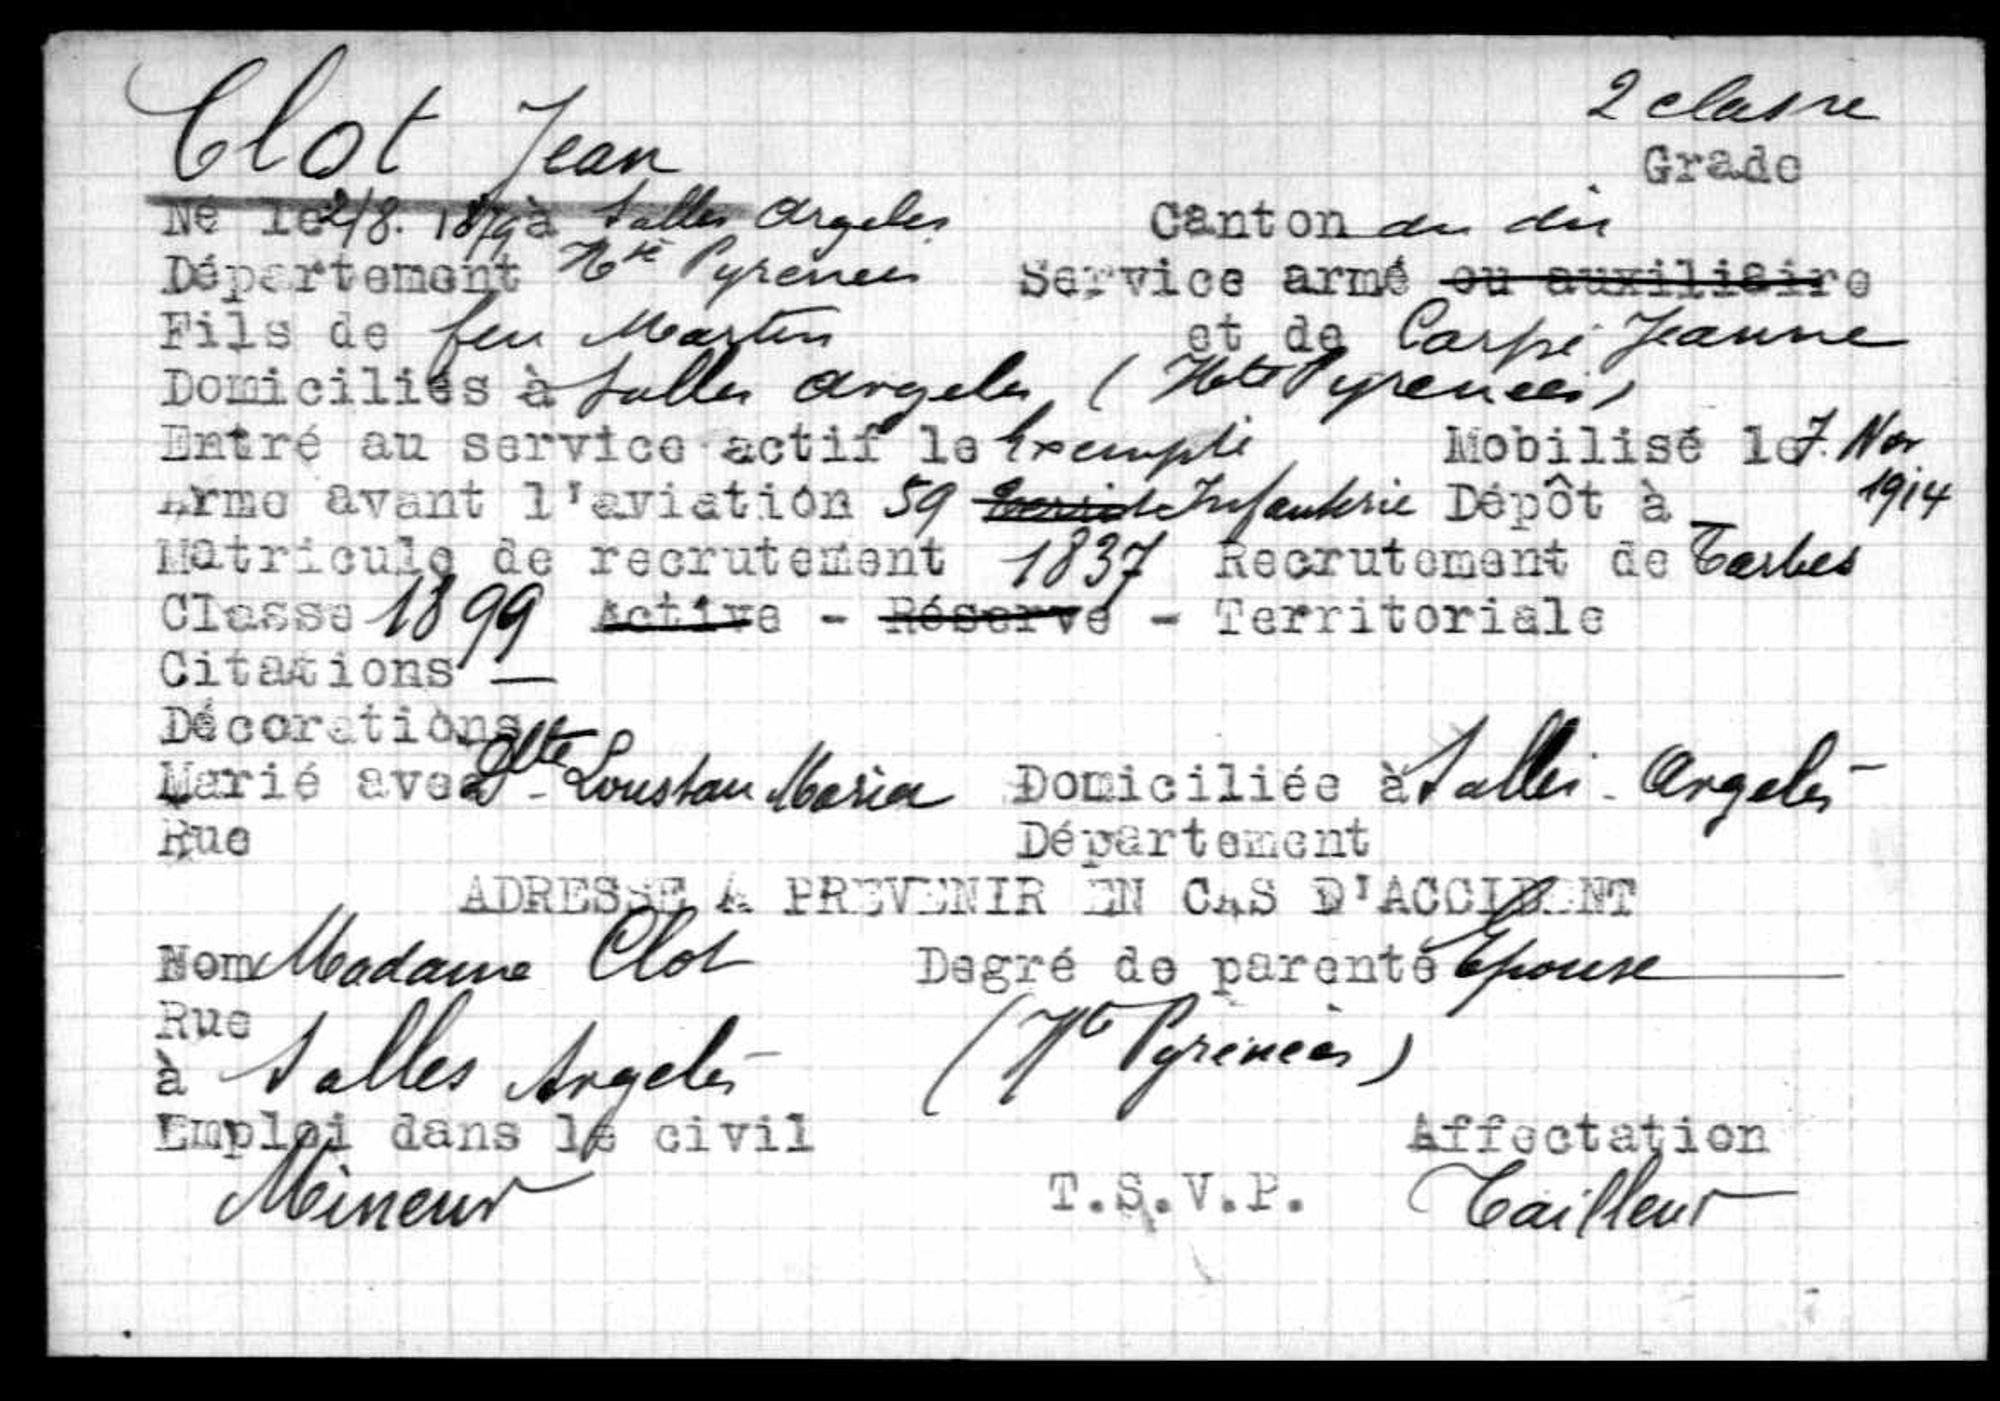 Clot Jean
2 classe
Grade
Né le 2/8. 1879 à Salles Argeles
Canton du dit
Département Htes Pyrenees
Service armé ou auxiliaire
Fils de feu Martin et de Carpé Jeanne
Domiciliés à Salles Argeles (Htes Pyrenées)
Entré au service actif le Exempté Mobilisé le 7. Nov 1914
Arme avant l'aviation 59 Infanterie Dépôt à —
Matricule de recrutement 1837 Recrutement de Tarbes
Classe 1899 Active - Réserve - Territoriale
Citations —
Décorations
Marié avec Loustau Maria Domiciliée à Salles - Argelès
Rue Département
ADRESSE A PREVENIR EN CAS D'ACCIDENT
Nom Madame Clot Degré de parenté Epouse
Rue
à Salles Argelès (Hte Pyrénées)
Emploi dans le civil Affectation
Mineur T.S.V.P. Tailleur